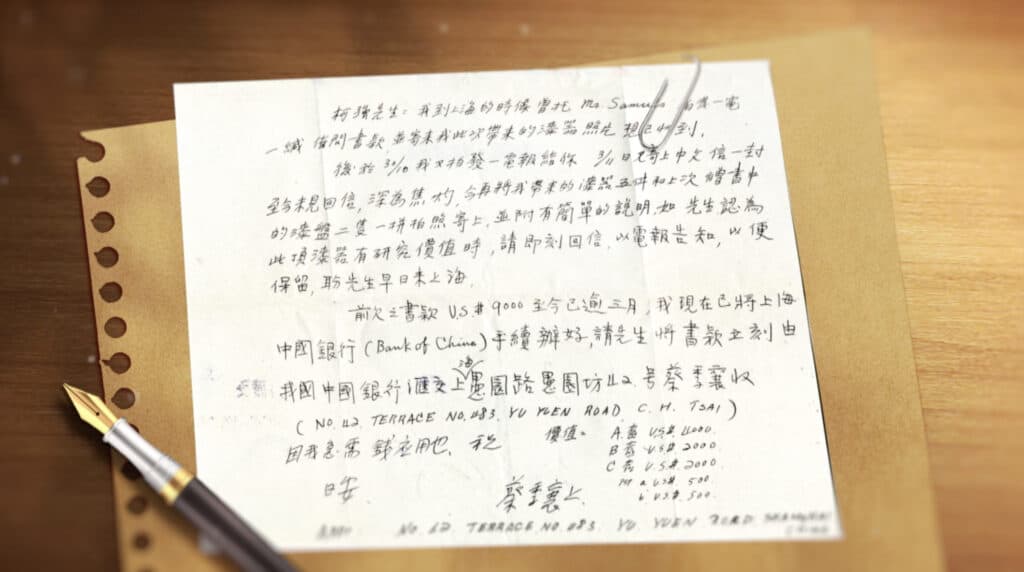 柯強先生：我到上海的時候曾托 Mr. Samuels
一緘 借問書款並寄來我此次帶來的漆器照片 想已收到.
後於 30/10 我又拍發一電報給你 3/11 日又寄上中文信一封
至今未見回信, 深為焦灼, 今再將我帶來的漆器五件和上次繒書中
的漆盤二隻一併拍照寄上, 並附有簡單的說明, 如先生認為
此項漆器有研究價值時, 請即刻回信, 以電報告知, 以便
保留, 盼先生早日來上海.
前次之書款 U.S.$ 9000 至今已逾三月, 我現在已將上海
中國銀行 (Bank of China) 手續辦好, 請先生將書款立刻由
我國中國銀行滙交上海愚園路愚園坊42号蔡季襄收
(NO. 42. TERRACE NO. 483. YU YUEN ROAD C. H. TSAI)
因我急需錢应用也. 祝
價值: A.書 US$. 4000.
B書 US$. 2000
C書 U.S$. 2000.
a US$. 500.
b US$. 500.
日安
蔡季襄上.
NO. 42. TERRACE NO. 483. YU. YUEN ROAD SHANGHAI